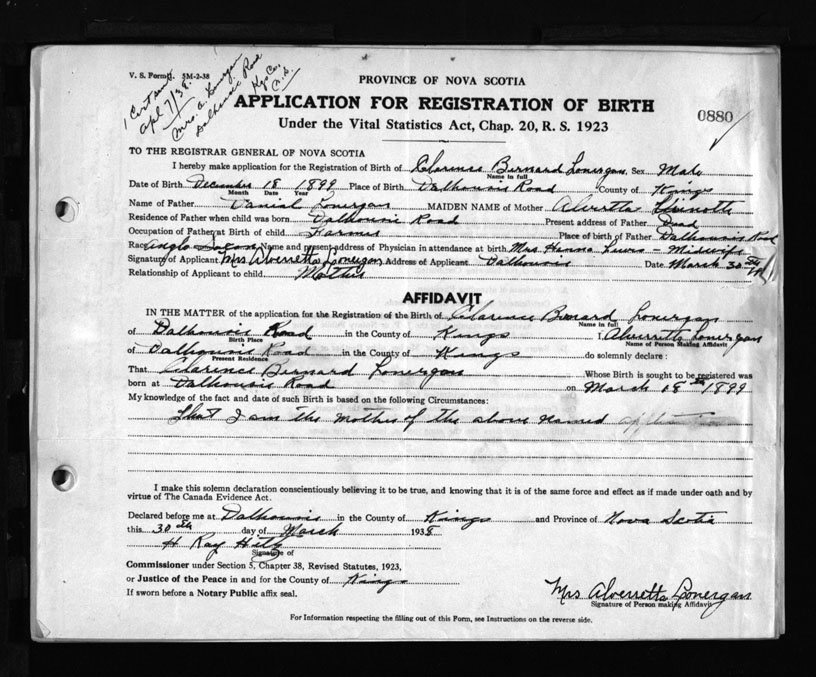 V. S. Form 5M-2-38
1 Cert sent
Apl 7/38.
Mrs. A. Lonergan
Dalhousie Road
Kgs Co.
N.S.
PROVINCE OF NOVA SCOTIA
APPLICATION FOR REGISTRATION OF BIRTH
Under the Vital Statistics Act, Chap. 20, R. S. 1923
0880
TO THE REGISTRAR GENERAL OF NOVA SCOTIA
I hereby make application for the Registration of Birth of Clarence Bernard Lonergan Sex Male
Name in full
Date of Birth December 18 1899 Place of Birth Dalhousie Road County of Kings
Month Date Year
Name of Father Danial Lonergan MAIDEN NAME of Mother Alverretta
Residence of Father when child was born Dalhousie Road Present address of Father Dead
Occupation of Father at Birth of child Farmer Place of birth of Father Dalhousie Road
Race Anglo Saxon Name and present address of Physician in attendance at birth Mrs. Hanna Lewis - Midwife
Signature of Applicant Mrs Alverretta Lonergan Address of Applicant Dalhousie Date March 30th
Relationship of Applicant to child Mother
AFFIDAVIT
IN THE MATTER of the application for the Registration of the Birth of Clarence Bernard Lonergan
Name in full
of Dalhousie Road in the County of Kings I, Alverretta Lonergan
Birth Place Name of Person Making Affidavit
of Dalhousie Road in the County of Kings do solemnly declare:
Present Residence
That Clarence Bernard Lonergan Whose Birth is sought to be registered was
born at Dalhousie Road on March 18th 1899
My knowledge of the fact and date of such Birth is based on the following Circumstances:
That I am the mother of the above named
I make this solemn declaration conscientiously believing it to be true, and knowing that it is of the same force and effect as if made under oath and by
virtue of The Canada Evidence Act.
Declared before me at Dalhousie in the County of Kings and Province of Nova Scotia
this 30th day of March 1938
H Ray Hiltz
Signature of
Commissioner under Section 5, Chapter 38, Revised Statutes, 1923,
or Justice of the Peace in and for the County of Kings
If sworn before a Notary Public affix seal.
Mrs Alverretta Lonergan
Signature of Person making Affidavit
For Information respecting the filling out of this Form, see Instructions on the reverse side.